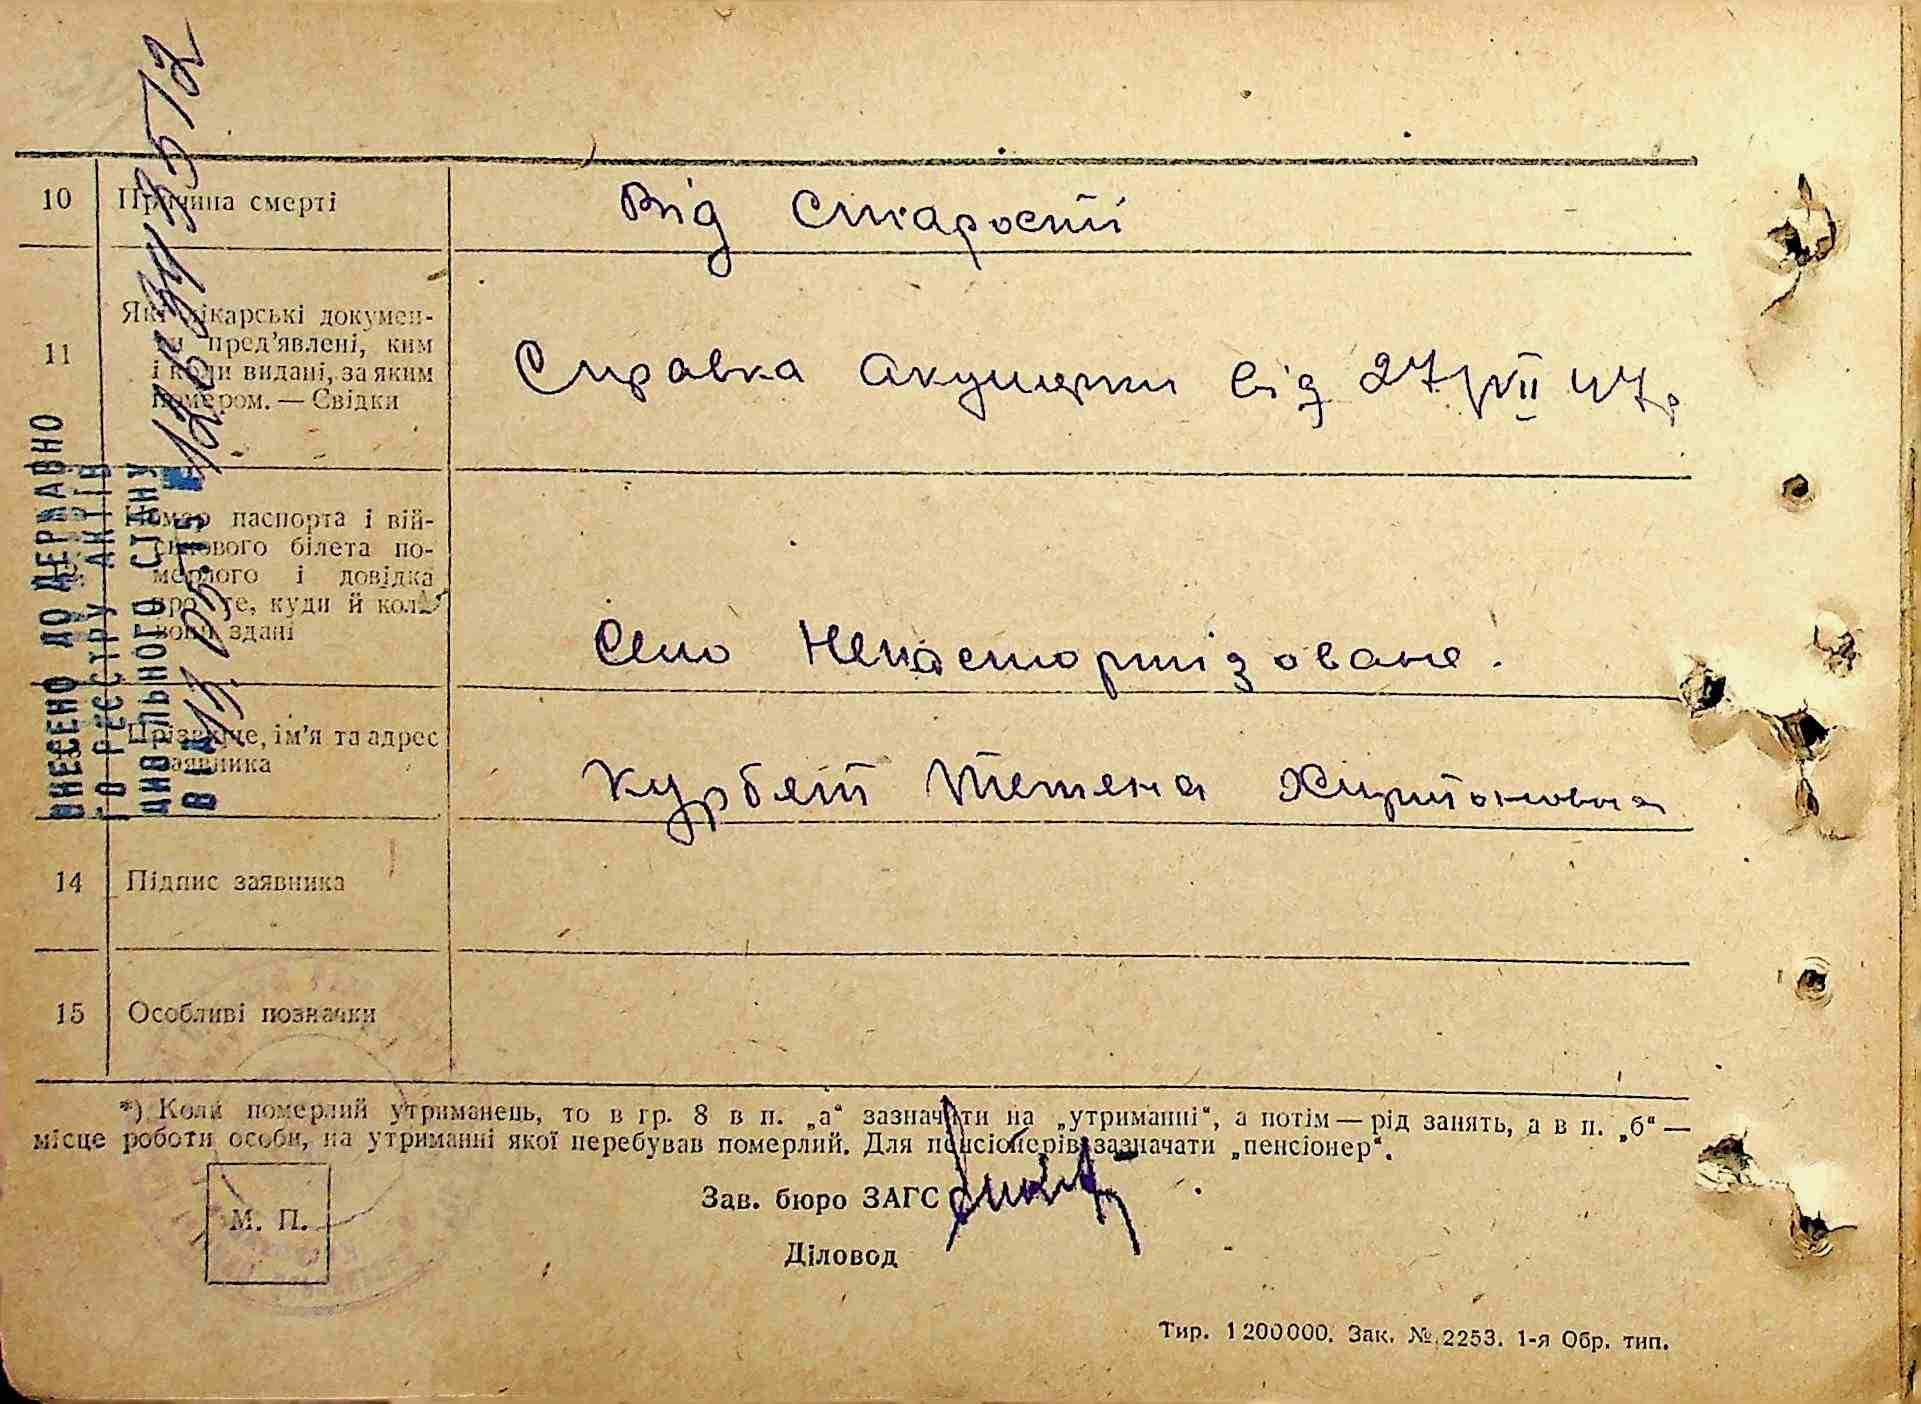 10 Причина смерті Від Старості
11 Які лікарські докумен-
ти пред'явлені, ким
і коли видані, за яким
номером. — Свідки
Справка акушерки від 27/VII 47р
Номер паспорта і вій-
ськового білета по-
мерлого і довідка
про те, куди й коли
вони здані
Село Непаспортізоване.
Прізвище, ім'я та адрес
заявника
Курбет Тетяна
14 Підпис заявника
15 Особливі позначки
*) Коли померлий утриманець, то в гр. 8 в п. „а“ зазначити на „утриманні“, а потім — рід занять, а в п. „б“ —
місце роботи особи, на утриманні якої перебував померлий. Для пенсіонерів зазначати „пенсіонер“.
М. П.
Зав. бюро ЗАГС
Діловод
Тир. 1 200 000. Зак. № 2253. 1-я Обр. тип.
ВНЕСЕНО ДО ДЕРЖАВНО
ГО РЕЄСТРУ АКТІВ
ЦИВІЛЬНОГО СТАНУ
ВІД